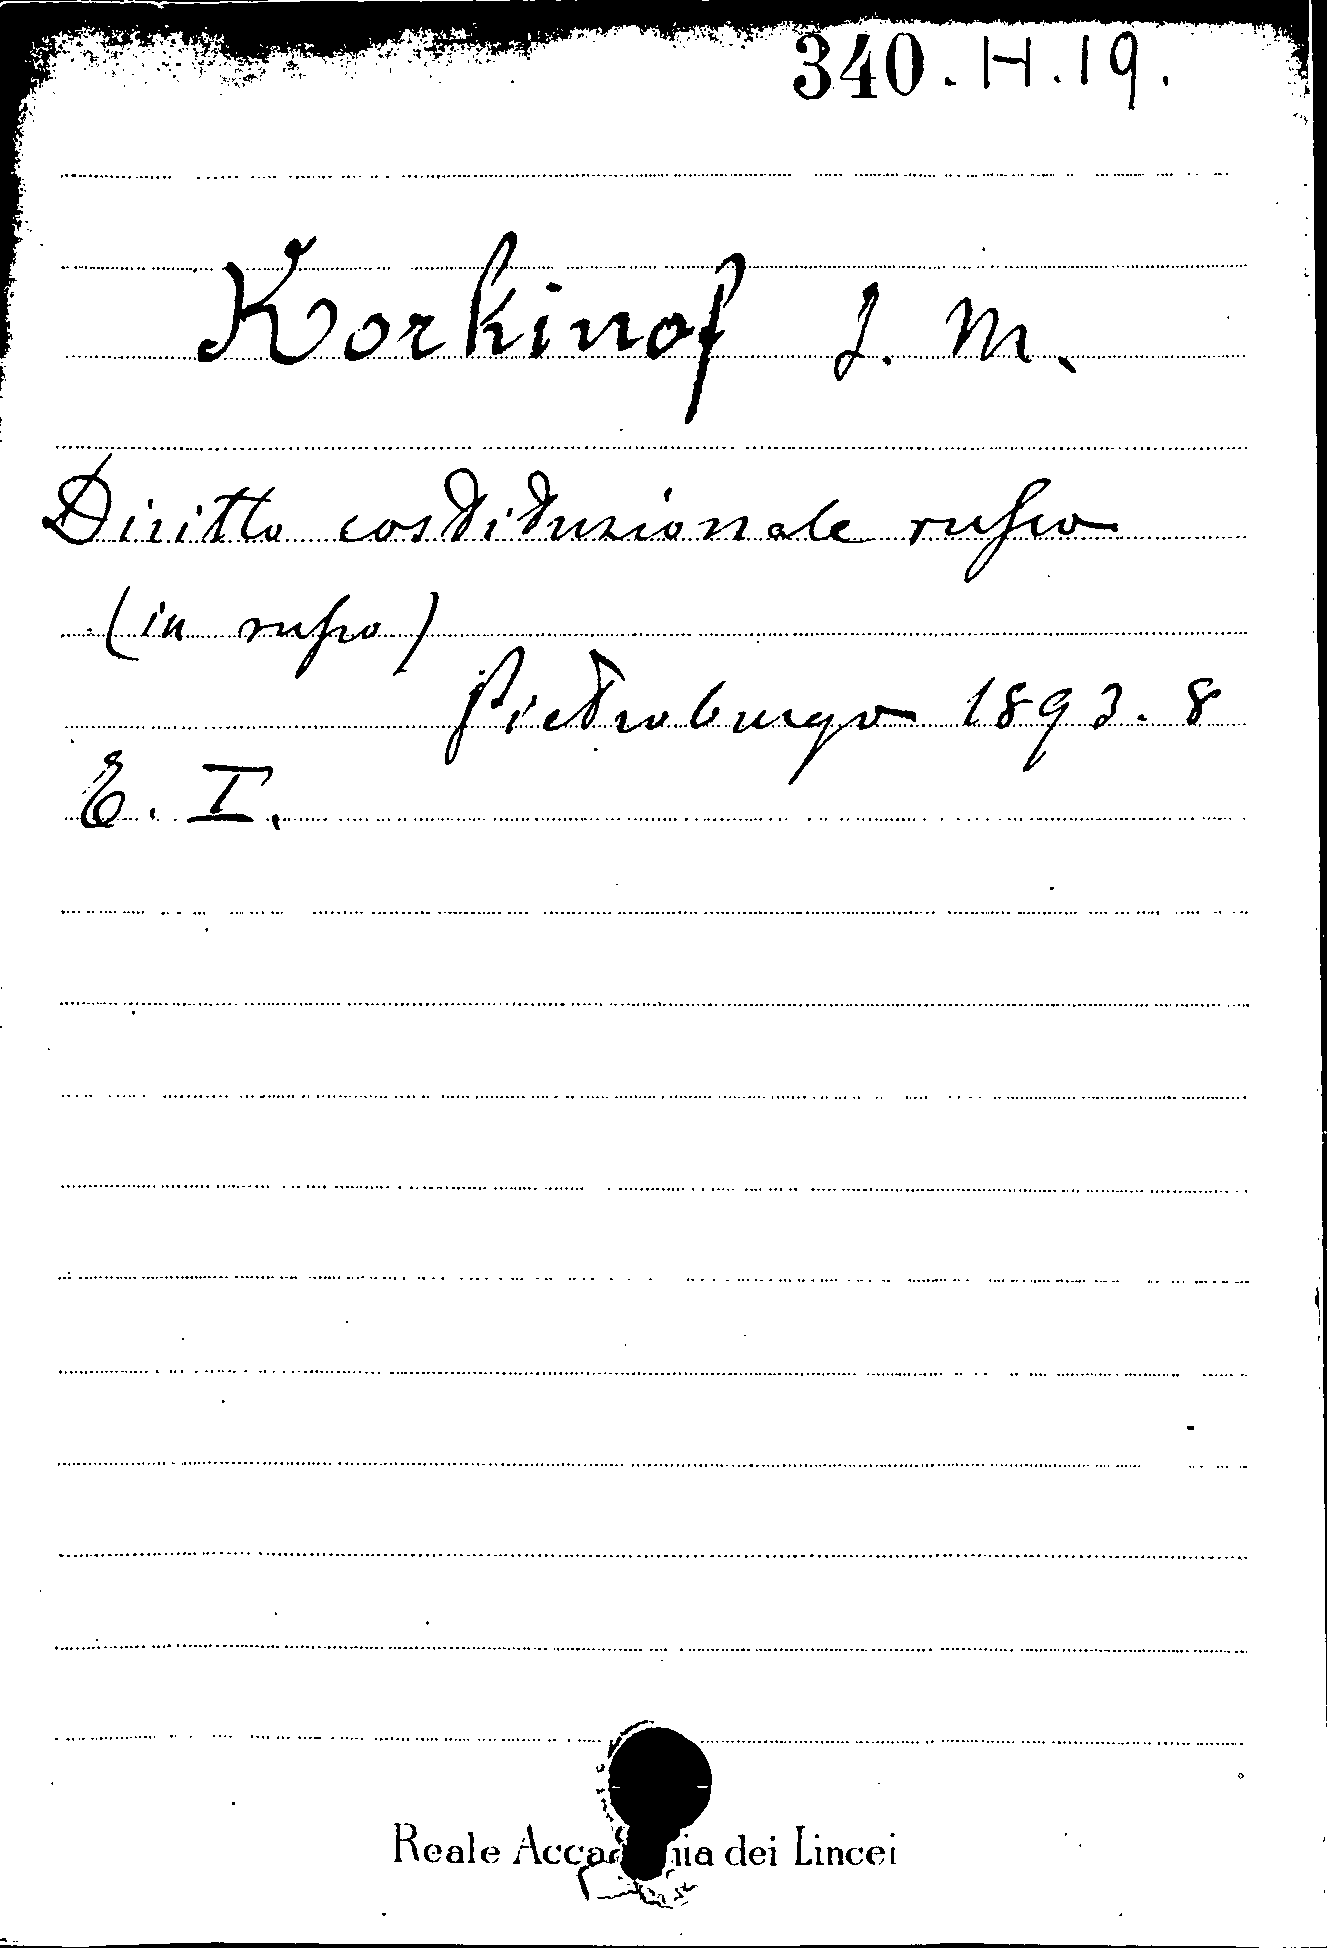 340.H.19.
Korkinof J. M.
Diritto costituzionale russo
(in russo)
Pietroburgo 1893. 8
E. I.
Reale Accademia dei Lincei